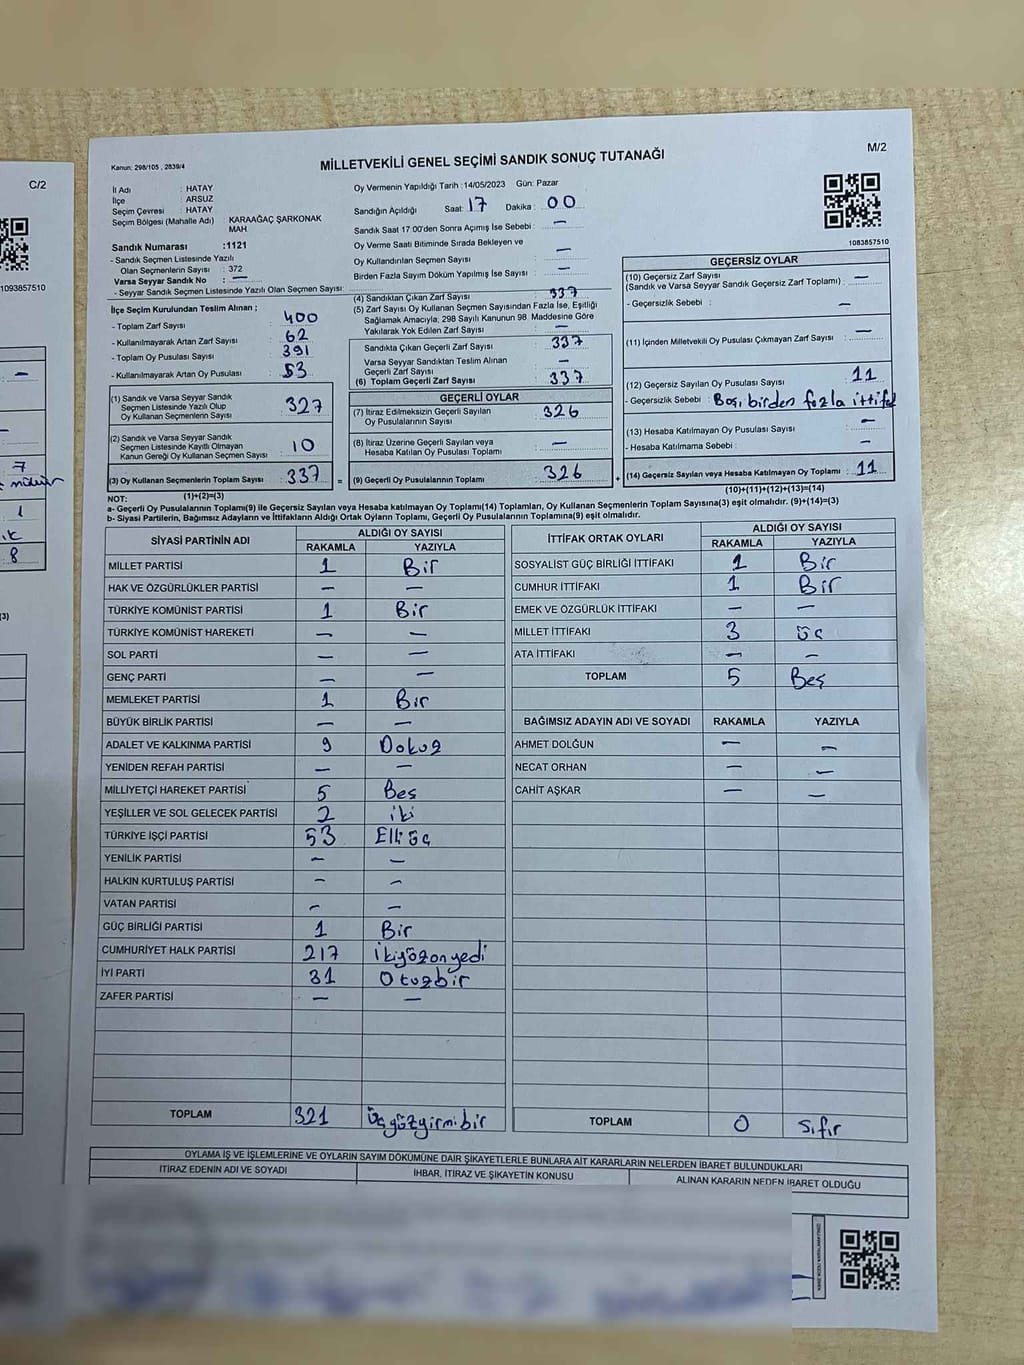 Kanun: 298/105 , 2839/4
MİLLETVEKİLİ GENEL SEÇİMİ SANDIK SONUÇ TUTANAĞI
M/2
C/2
İl Adı : HATAY
İlçe : ARSUZ
Seçim Çevresi : HATAY
Seçim Bölgesi (Mahalle Adı) KARAAĞAÇ ŞARKONAK MAH.
Sandık Numarası :1121
- Sandık Seçmen Listesinde Yazılı
Olan Seçmenlerin Sayısı : 372
Varsa Seyyar Sandık No : —
- Seyyar Sandık Seçmen Listesinde Yazılı Olan Seçmen Sayısı:
Oy Vermenin Yapıldığı Tarih :14/05/2023 Gün: Pazar
Sandığın Açıldığı Saat: 17 Dakika : 00
Sandık Saat 17:00'den Sonra Açımış İse Sebebi : —
Oy Verme Saati Bitiminde Sırada Bekleyen ve
Oy Kullandırılan Seçmen Sayısı : —
Birden Fazla Sayım Döküm Yapılmış İse Sayısı : —
1083857510
1093857510
İlçe Seçim Kurulundan Teslim Alınan ;
- Toplam Zarf Sayısı : 400
- Kullanılmayarak Artan Zarf Sayısı : 62
- Toplam Oy Pusulası Sayısı : 391
- Kullanılmayarak Artan Oy Pusulası : 53
(1) Sandık ve Varsa Seyyar Sandık
Seçmen Listesinde Yazılı Olup
Oy Kullanan Seçmenlerin Sayısı 327
(2) Sandık ve Varsa Seyyar Sandık
Seçmen Listesinde Kayıtlı Olmayan
Kanun Gereği Oy Kullanan Seçmen Sayısı 10
(3) Oy Kullanan Seçmenlerin Toplam Sayısı : 337
(1)+(2)=(3)
(4) Sandıktan Çıkan Zarf Sayısı : 337
(5) Zarf Sayısı Oy Kullanan Seçmen Sayısından Fazla İse, Eşitliği
Sağlamak Amacıyla, 298 Sayılı Kanunun 98. Maddesine Göre
Yakılarak Yok Edilen Zarf Sayısı : —
Sandıkta Çıkan Geçerli Zarf Sayısı : 337
Varsa Seyyar Sandıktan Teslim Alınan
Geçerli Zarf Sayısı : —
(6) Toplam Geçerli Zarf Sayısı : 337
GEÇERLİ OYLAR
(7) İtiraz Edilmeksizin Geçerli Sayılan
Oy Pusulalarının Sayısı : 326
(8) İtiraz Üzerine Geçerli Sayılan veya
Hesaba Katılan Oy Pusulası Toplamı : —
= (9) Geçerli Oy Pusulalarının Toplamı : 326
GEÇERSİZ OYLAR
(10) Geçersiz Zarf Sayısı
(Sandık ve Varsa Seyyar Sandık Geçersiz Zarf Toplamı) : —
- Geçersizlik Sebebi : —
(11) İçinden Milletvekili Oy Pusulası Çıkmayan Zarf Sayısı : —
(12) Geçersiz Sayılan Oy Pusulası Sayısı : 11
- Geçersizlik Sebebi : Boş, birden fazla ittifak
(13) Hesaba Katılmayan Oy Pusulası Sayısı : —
- Hesaba Katılmama Sebebi : —
+ (14) Geçersiz Sayılan veya Hesaba Katılmayan Oy Toplamı : 11
(10)+(11)+(12)+(13)=(14)
NOT:
a- Geçerli Oy Pusulalarının Toplamı(9) ile Geçersiz Sayılan veya Hesaba katılmayan Oy Toplamı(14) Toplamları, Oy Kullanan Seçmenlerin Toplam Sayısına(3) eşit olmalıdır. (9)+(14)=(3)
b- Siyasi Partilerin, Bağımsız Adayların ve İttifakların Aldığı Ortak Oyların Toplamı, Geçerli Oy Pusulalarının Toplamına(9) eşit olmalıdır.
SİYASİ PARTİNİN ADI ALDIĞI OY SAYISI
RAKAMLA YAZIYLA
MİLLET PARTİSİ 1 Bir
HAK VE ÖZGÜRLÜKLER PARTİSİ — —
TÜRKİYE KOMÜNİST PARTİSİ 1 Bir
TÜRKİYE KOMÜNİST HAREKETİ — —
SOL PARTİ — —
GENÇ PARTİ — —
MEMLEKET PARTİSİ 1 Bir
BÜYÜK BİRLİK PARTİSİ — —
ADALET VE KALKINMA PARTİSİ 9 Dokuz
YENİDEN REFAH PARTİSİ — —
MİLLİYETÇİ HAREKET PARTİSİ 5 Beş
YEŞİLLER VE SOL GELECEK PARTİSİ 2 iki
TÜRKİYE İŞÇİ PARTİSİ 53 Elli üç
YENİLİK PARTİSİ — —
HALKIN KURTULUŞ PARTİSİ — —
VATAN PARTİSİ — —
GÜÇ BİRLİĞİ PARTİSİ 1 Bir
CUMHURİYET HALK PARTİSİ 217 ikiyüzonyedi
İYİ PARTİ 31 Otuzbir
ZAFER PARTİSİ — —
TOPLAM 321 üçyüzyirmibir
İTTİFAK ORTAK OYLARI ALDIĞI OY SAYISI
RAKAMLA YAZIYLA
SOSYALİST GÜÇ BİRLİĞİ İTTİFAKI 1 Bir
CUMHUR İTTİFAKI 1 Bir
EMEK VE ÖZGÜRLÜK İTTİFAKI — —
MİLLET İTTİFAKI 3 üç
ATA İTTİFAKI — —
TOPLAM 5 Beş
BAĞIMSIZ ADAYIN ADI VE SOYADI RAKAMLA YAZIYLA
AHMET DOLĞUN — —
NECAT ORHAN — —
CAHİT AŞKAR — —
TOPLAM 0 Sıfır
OYLAMA İŞ VE İŞLEMLERİNE VE OYLARIN SAYIM DÖKÜMÜNE DAİR ŞİKAYETLERLE BUNLARA AİT KARARLARIN NELERDEN İBARET BULUNDUKLARI
İTİRAZ EDENİN ADI VE SOYADI İHBAR, İTİRAZ VE ŞİKAYETİN KONUSU ALINAN KARARIN NEDEN İBARET OLDUĞU
7
1
8
(3)